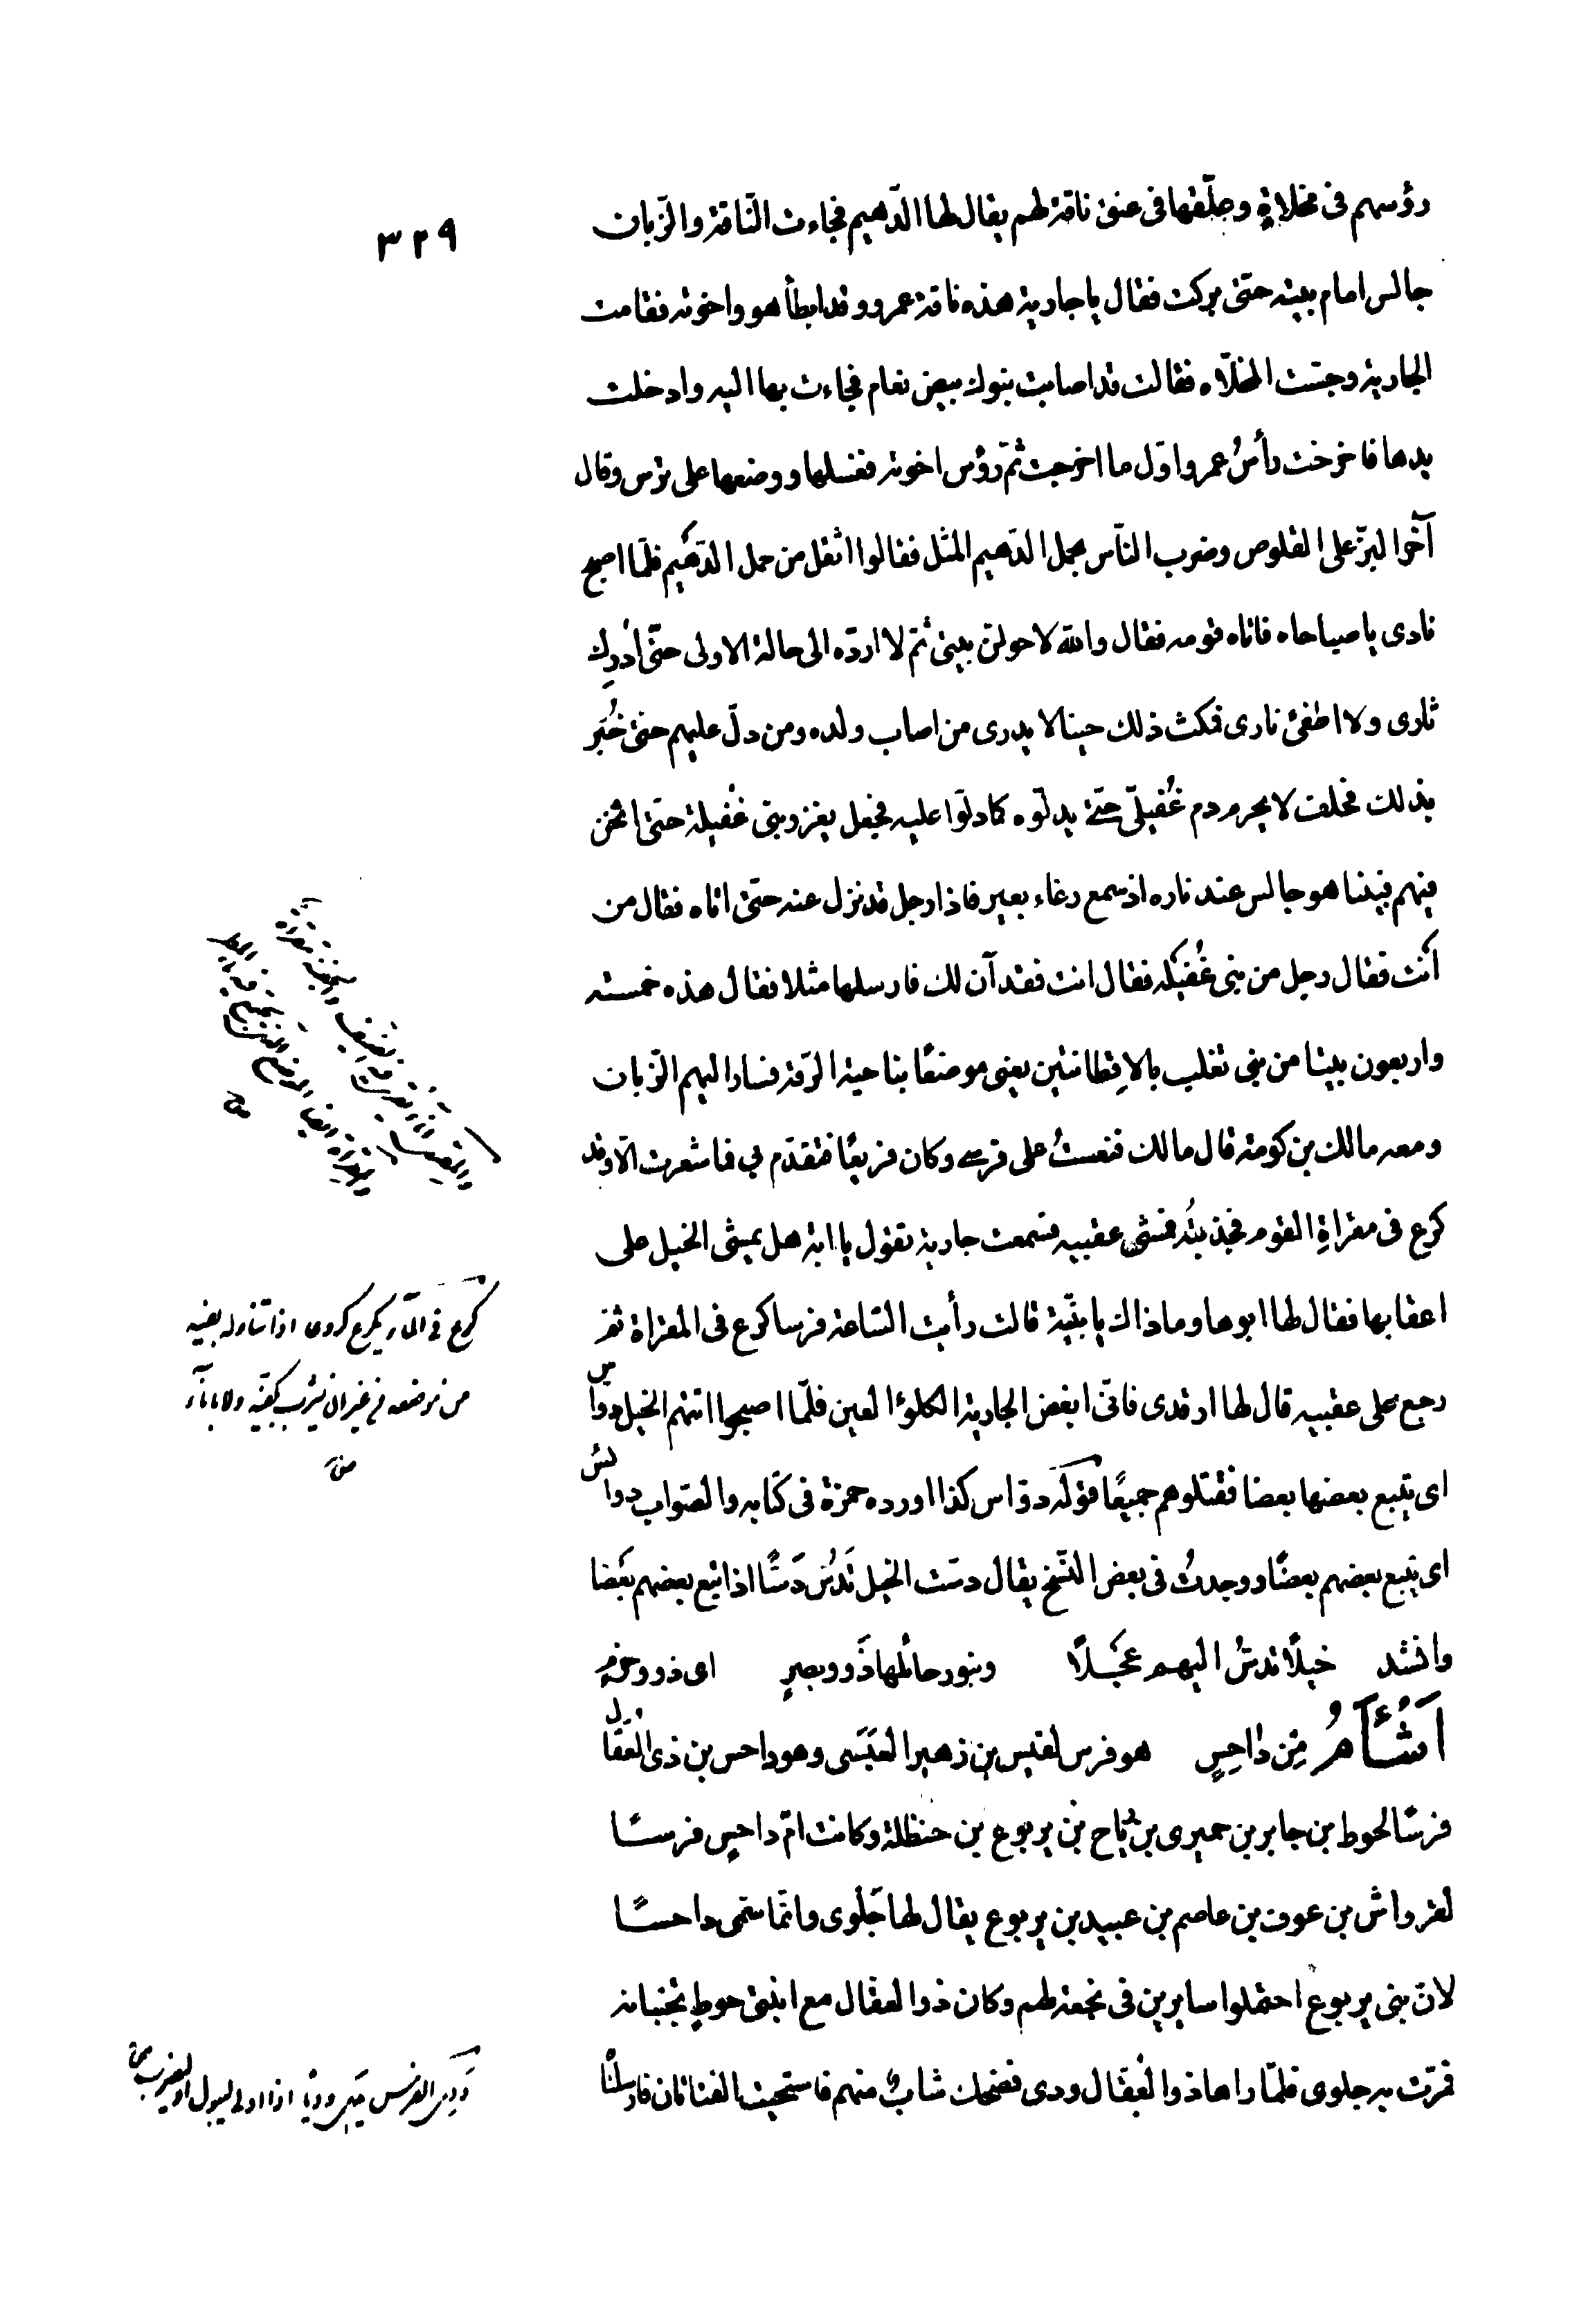 ٣٢٩
رؤسهم فى مخلاةٍ وعلّقها فى عنق ناقة لهم يقال لها الدّهيم فجاءت النّاقة والزّبان
جالس امام بيته حتى بركت فقال يا جارية هذه ناقة عمرو وقد ابطأ هو واخوته فقامت
الجارية وجسّت المخلاه فقالت قد اصابت بنوك بيض نعام فجاءت بها اليه وادخلت
يدها فاخرجت رأسُ عمرو اوّل ما اخرجت ثمّ رؤس اخوته فغسلها ووضعها على ترس وقال
آخر البزّ على القلوص وضرب النّاس بحمل الدّهيم المثل فقالوا اثقل من حمل الدّهيم فلمّا اصبح
نادى يا صباحاه فاتاه قومه فقال والله لاحولنّ بيتى ثمّ لا اردّه الى حالة الاولى حتّى اُدرِك
ثارى ولا اطفئ نارى فمكث ذلك حينا لا يدرى من اصاب ولده ومن دلّ عليهم حتى خُبّر
بذلك فحلف لا يحرم دم غُفيلّى حتّى يدلّوه كما دلّوا عليه فجعل يغزو بنى غُفيلة حتى اثخن
فيهم فبينا هو جالس عند ناره اذ سمع رغاء بعير فاذا رجل قد نزل عنه حتى اتاه فقال من
انت فقال رجل من بنى غُفيله فقال انت فقد آن لك فارسلها مثلا فقال هذه خمسة
واربعون بيتا من بنى تغلب بالاِقطانتين يعنى موضعًا بناحية الرقّة فسار اليهم الزّبان
ومعه مالك بن كومة قال مالك فنعستُ على فرسى وكان فزيعًا فتقدّم بى فما شعرت الّا وقد
كرع فى مقراةِ القوم فجذبتُه فمشى عقبيه فسمعت جارية تقول يا ابة هل يمشى الخيل على
اعقابها فقال لها ابوها وما ذاك يا بنيّة قالت رأيت السّاعة فرسا كرع فى المقراة ثم
رجع على عقبيه قال لها ارقدى فانّى ابغض الجارية الكلوُء العين فلمّا اصبحوا اتتهم الخيل دواس
اى يتبع بعضها بعضا فقتلوهم جميعًا قوله دوّاس كذا اورده حمزة فى كتابه والصّواب دواس
اى يتبع بعضهم بعضًا ووجدتُ فى بعض النّسخ يقال دسّت الخيل تَدُسّ دَسًّا اذا تبع بعضهم بعضا
وانشد خيلًا تدسُّ اليهم عَجَلًا وبنو رحائلها ذَوو بصرٍ اى ذوو حزمٍ
اَشْأَمُ مِن داحِسٍ هو فرس لقيس بن زهير العبسى وهو داحس بن ذى العُقّال
فرسًا لحوط بن جابر بن حميرى بن رياح بن يربوع بن حنظلة وكانت امّ داحسٍ فرسًا
لقرواش بن عوف بن عاصم بن عبيد بن يربوع يقال لها جَلْوى وانّما سمّى داحسًا
لانّ بنى يربوع احتملوا سايرين فى نجعة لهم وكان ذو العقّال مع ابنتى حوطٍ تجنبانه
فمرّت به جلوى فلمّا راها ذو العُقّال ودى فضحك شابٌ منهم فاستحيت الفتاتان فارسلتا
كرع فى المآء يكرع كروعا اذا تناوله بفيه
من موضعه من غير ان يشرب بكفيه ولا باناء
ودى الفرس يدى وديا اذا ادلى ليبول او ليضرب